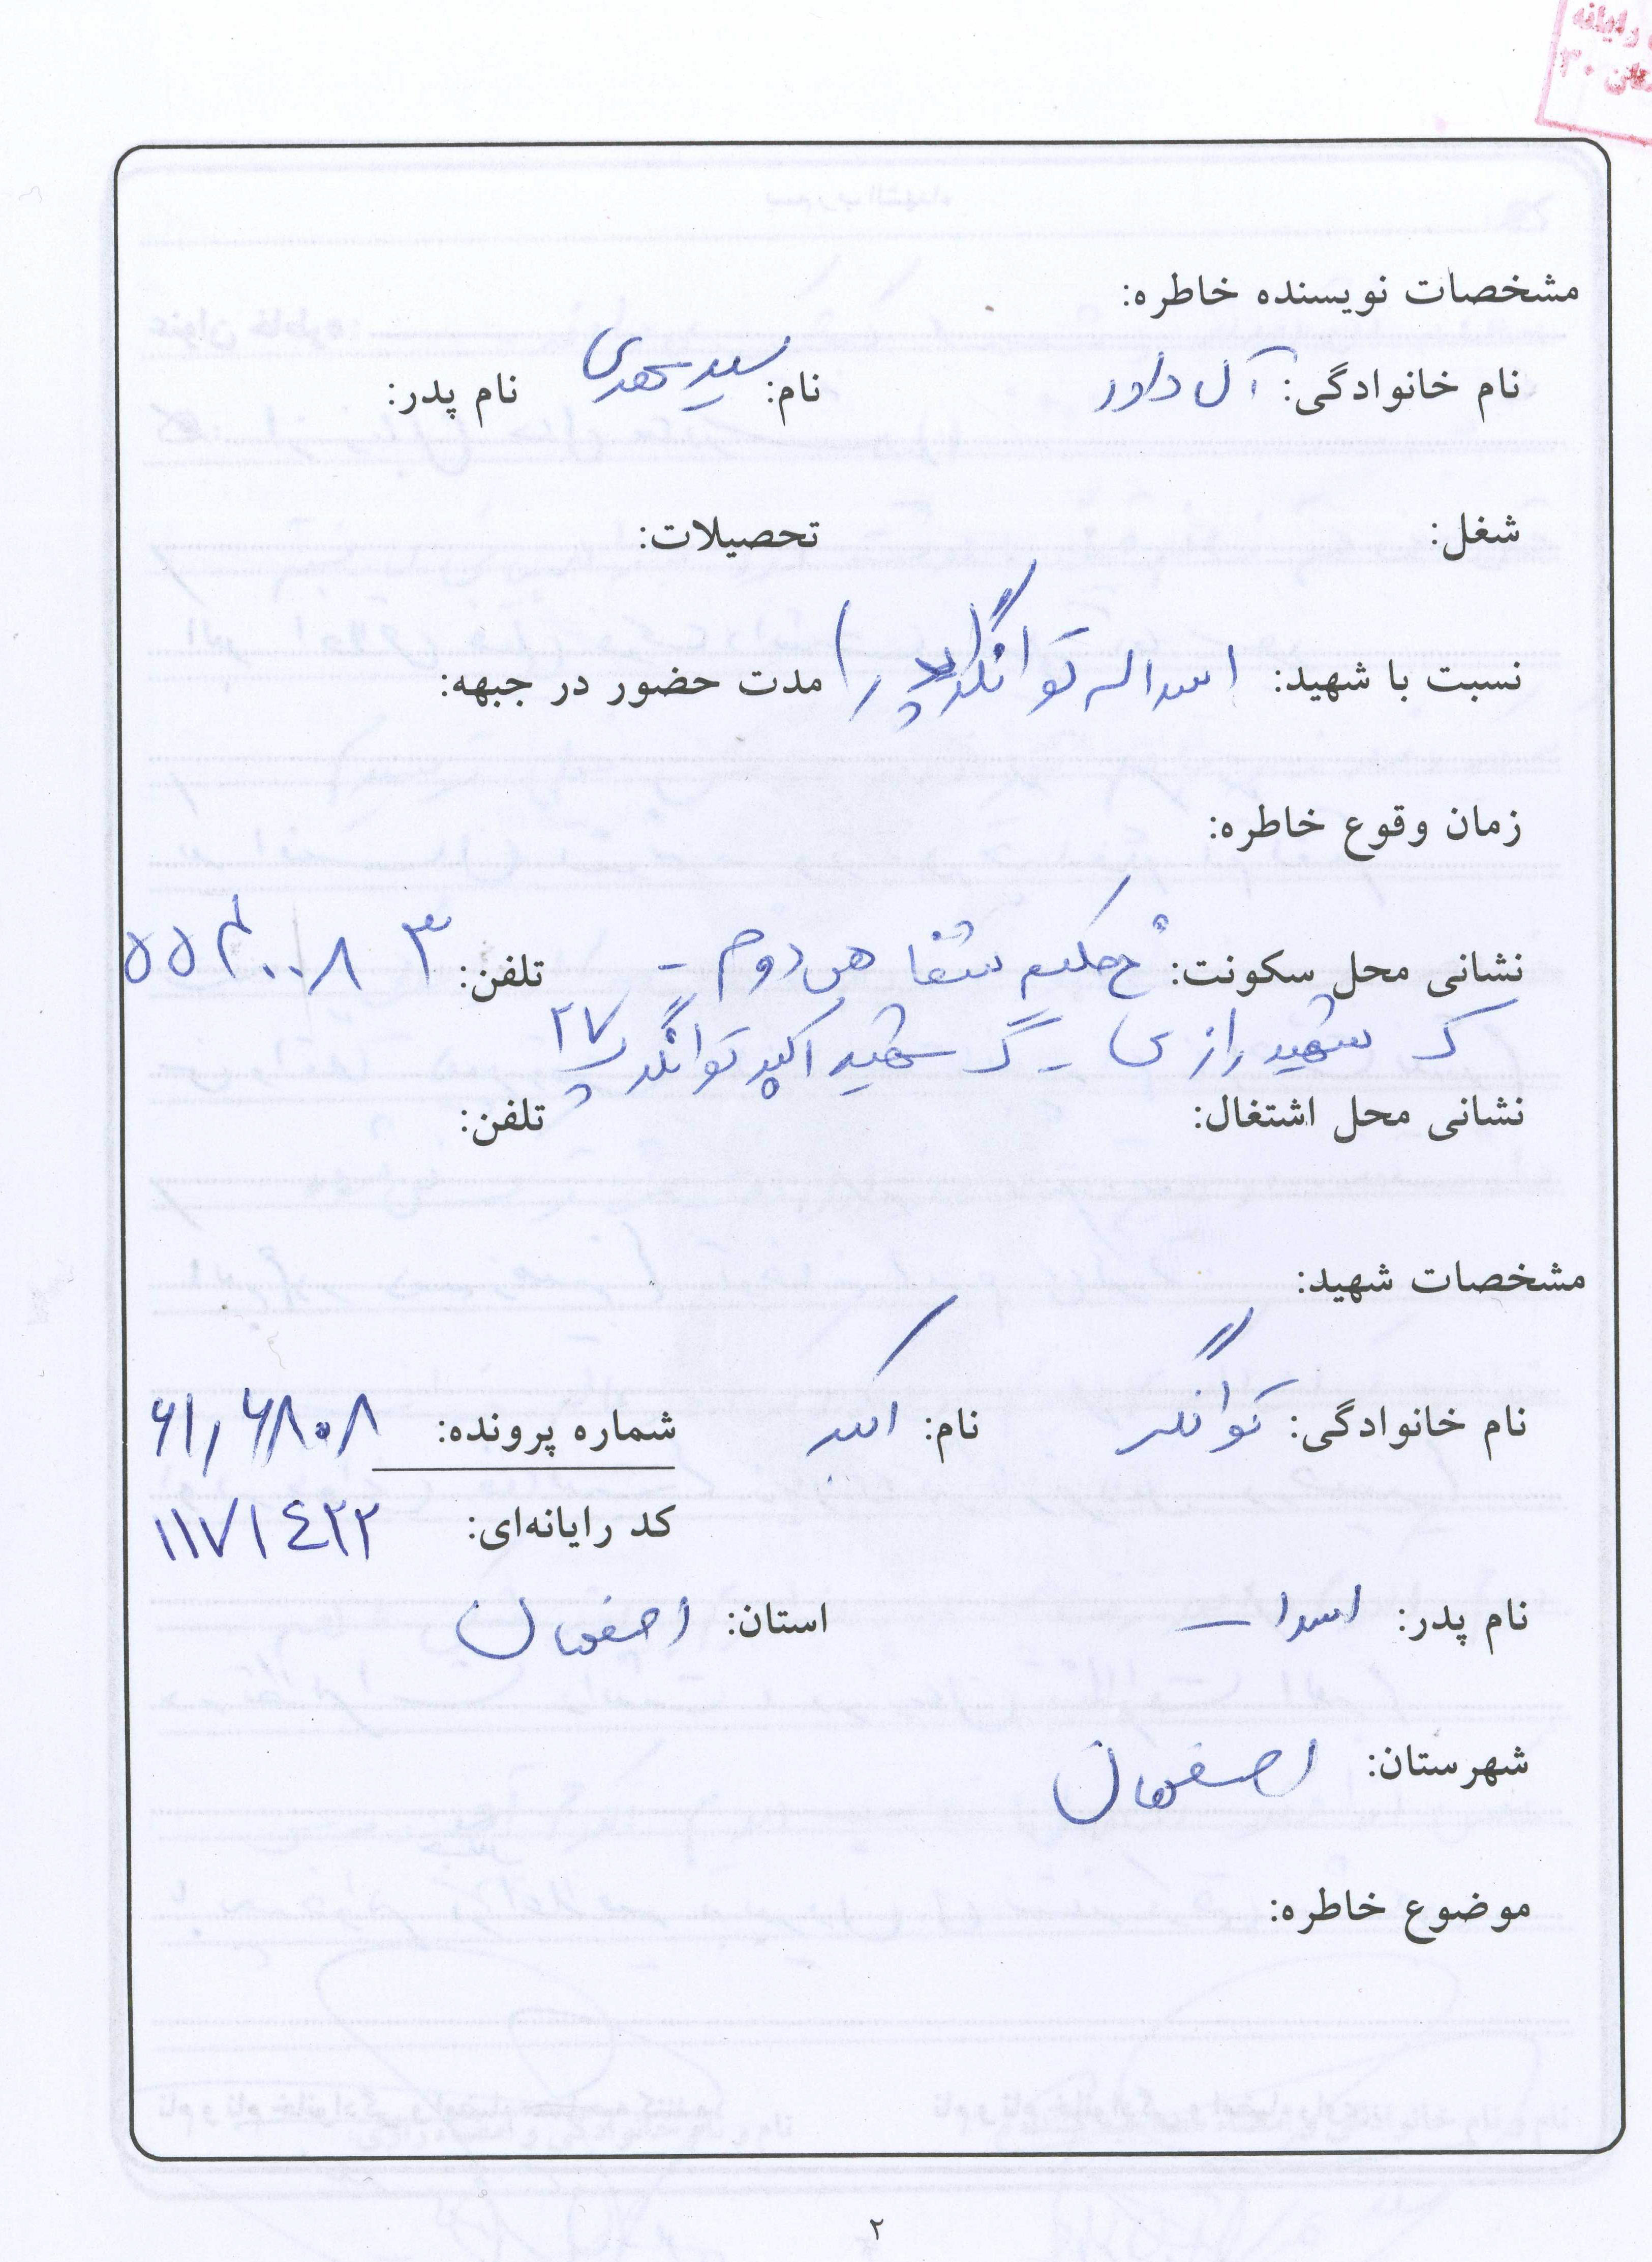 رایانه
۳۰
مشخصات نویسنده خاطره:
نام خانوادگی: آل داور نام: سید مهدی نام پدر:
شغل: تحصیلات:
نسبت با شهید: اسداله توانگر (پدر) مدت حضور در جبهه:
زمان وقوع خاطره:
نشانی محل سکونت: خ حکیم شفاهی دوم - تلفن: ۵۵۴۰۰۸۳
ک شهید رازی - گ شهید اکبر توانگر پ ۲۷
نشانی محل اشتغال: تلفن:
مشخصات شهید:
نام خانوادگی: توانگر نام: اکبر شماره پرونده: ۶۱,۶۸۰۸
کد رایانه‌ای: ۱۱۷۱٤۲۲
نام پدر: اسداله استان: اصفهان
شهرستان: اصفهان
موضوع خاطره:
۲